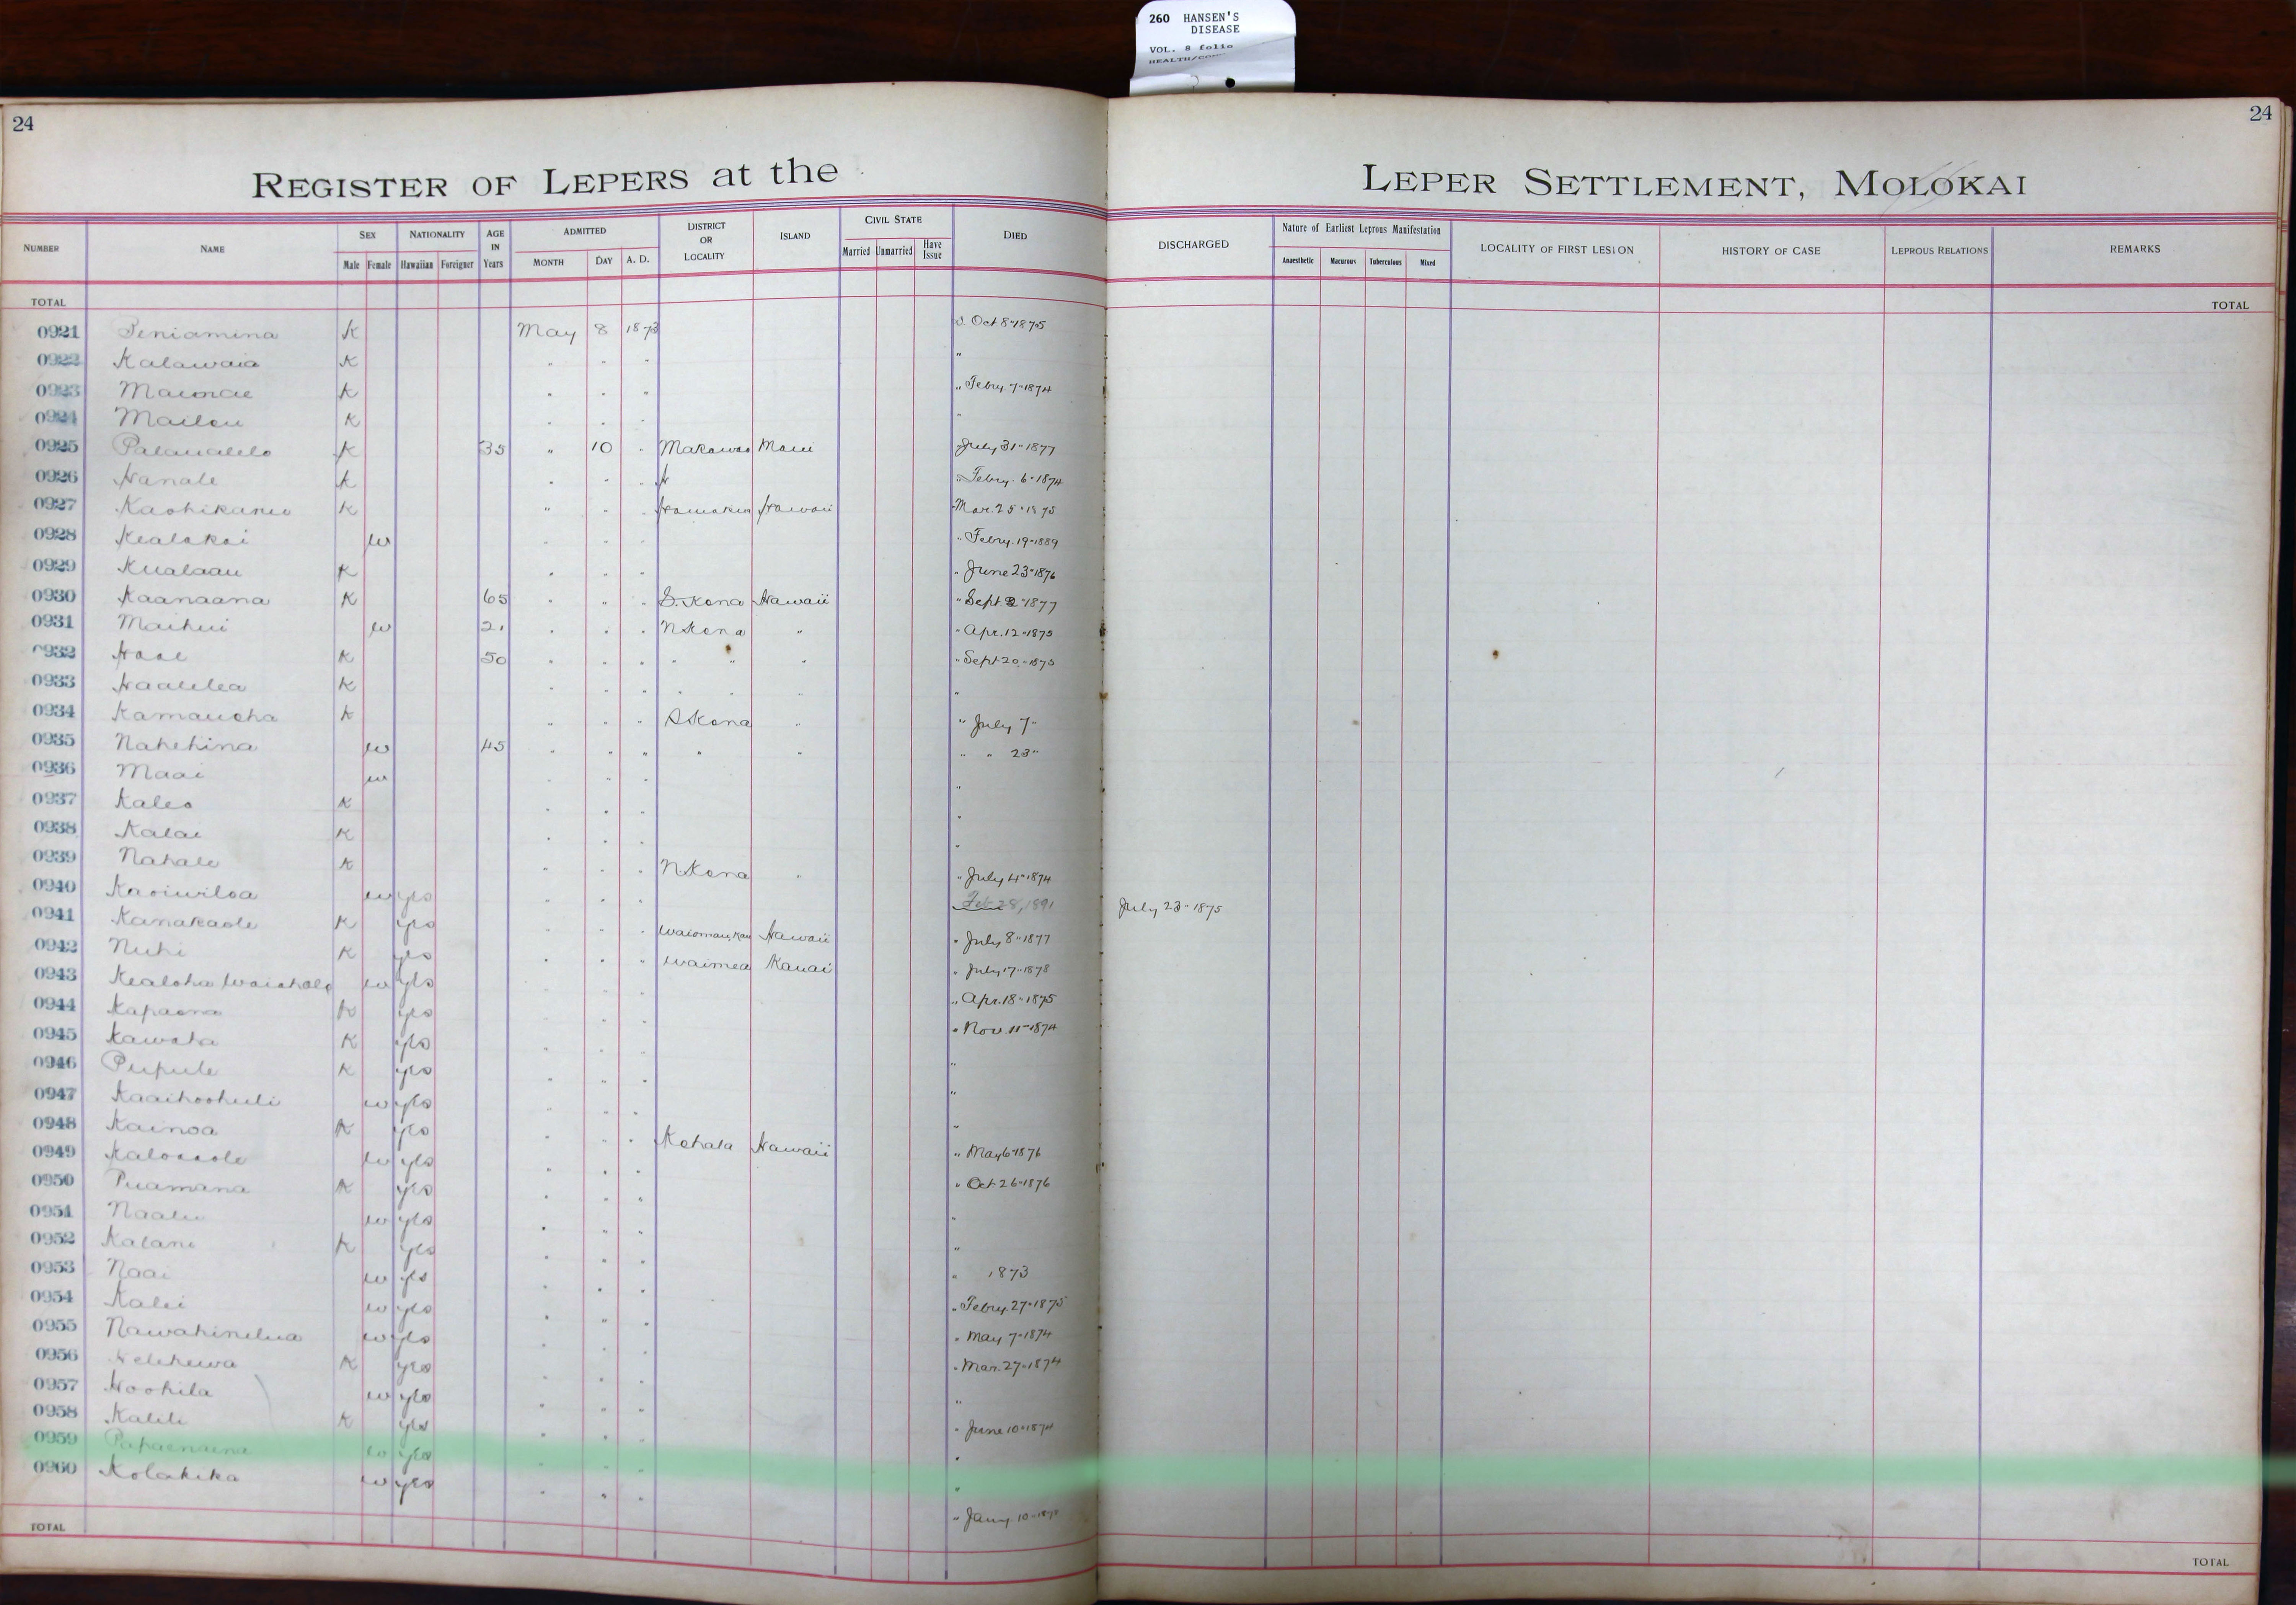 260 HANSEN'S
DISEASE
VOL. 8 folio
24
24
REGISTER OF LEPERS at the LEPER SETTLEMENT, MOLOKAI
NUMBER NAME SEX Male Female NATIONALITY Hawaiian Foreigner AGE IN Years ADMITTED MONTH DAY A. D. DISTRICT OR LOCALITY ISLAND CIVIL STATE Married Unmarried Have Issue DIED DISCHARGED Nature of Earliest Leprous Manifestation Anaesthetic Macurous Tuberculous Mixed LOCALITY OF FIRST LESION HISTORY OF CASE LEPROUS RELATIONS REMARKS
TOTAL TOTAL
0921 Peniamina K May 8 1873 Oct 8" 1875
0922 Kalawaia K " " " "
0923 K " " " " Febry. 7" 1874
0924 K " " " "
0925 K 35 " 10 " Makawao Maui " July 31" 1877
0926 Hanale K " " " " Febry. 6" 1874
0927 K " " " Hamakua Hawaii " Mar. 25" 1875
0928 w " " " " Febry. 19" 1889
0929 Kualaau K " " " " June 23" 1876
0930 Kaanaana K 65 " " " S. Kona Hawaii " Sept 2" 1877
0931 Maihui w 21 " " " N Kona " " Apr. 12" 1875
0932 K 50 " " " " " " " Sept 20" 1875
0933 Haalelea K " " " " " " "
0934 K " " " S Kona " " July 7"
0935 Nahehina w 45 " " " " " " " 23"
0936 Maai w " " " "
0937 Kaleo K " " " "
0938 Kalai K " " " "
0939 Nahale K " " " N Kona " " July 4" 1874
0940 Kaoiwiloa w yes " " " Feb 28, 1891 July 23" 1875
0941 Kanakaole K yes " " " Hawaii " July 8" 1877
0942 Nuhi K yes " " " Waimea Kauai " July 17" 1878
0943 Kealoha w yes " " " " Apr. 18" 1875
0944 Kapaona K yes " " " " Nov. 11" 1874
0945 Kawaha K yes " " " "
0946 Pupule K yes " " " "
0947 Kaaihoohuli w yes " " " "
0948 Kainoa K yes " " " Kohala Hawaii " May 6" 1876
0949 w yes " " " " Oct 26" 1876
0950 Puamana K yes " " " "
0951 w yes " " " "
0952 Kalani K yes " " " " 1873
0953 Naai w yes " " " " Febry. 27" 1875
0954 Kalei w yes " " " " May 7" 1874
0955 w yes " " " " Mar. 27" 1874
0956 K yes " " " "
0957 Hoohila w yes " " " " June 10" 1874
0958 Kalili K yes " " " "
0959 w yes " " " "
0960 Kolakika w yes " " " " Jany. 10"
TOTAL TOTAL